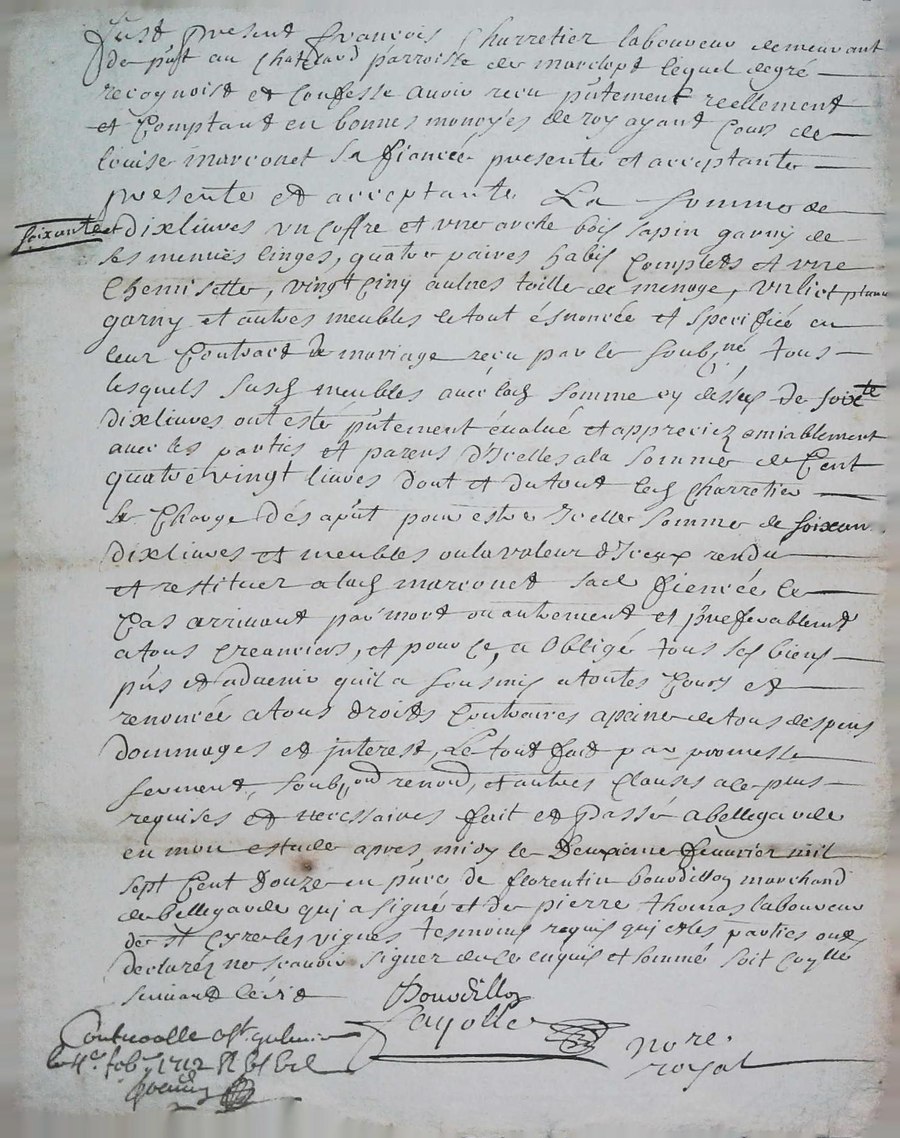 Fust present françois Charretier laboureur demeurant
de pnt au Chatelard parroisse de marclopt lequel de gré
recognoist et Confesse avoir reçu pntement reellement
et Comptant en bonnes monoyes de roy ayant Cours de
louise marconet sa fiancée presente et acceptante
presente et acceptante La somme de
soixante et dix livres un coffre et une arche bois sapin garny de
ses menues linges, quatre paires habis Complets et une
Chemisette, vingt Cinq aulnes toille de menage, un lict
garny et autres meubles le tout énoncée et speciffiée en
leur Contract de mariage reçu par le soubné tous
lesquels susd meubles avec lad somme cy dessus de soixte
dix livres ont esté pntement évalué et appreciez amiablement
avec les parties et parens d'Icelles a la somme de Cent
quatre vingt livres dont et du tout led Charretier
se Charge dés apnt pour estre Icelle somme de soixan
dix livres et meubles ou la valeur d'Iceux rendu
et restituer a lad marconet sad fiencée le
Cas arrivant par mort ou autrement et preferablemt
a tous creanciers, et pour Ce, a obligé tous ses biens
pns et advenir qu'il a sousmis a toutes Cours et
renoncée a tous droits Contraires a peine de tous despens
dommages et interest, Le tout fait par promesse
serment, soub, ond renond, et autres Clauses a ce plus
requises et necessaires fait et passé a bellegarde
en mon estude apres midy le Deuxieme feuvrier mil
sept Cent douze en pnce de florentin bourdillon marchand
de bellegarde qui a signé et de pierre thomas laboureur
de st Cyre les vignes tesmoins requis qui et les parties ont
declarez ne scavoir signer de ce enquis et sommé soit
suivant l'édit
Bourdillon
fayolle
nore
royal
Controolle
le 4e feb 1712